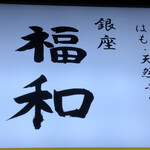 はも・天然ふ
銀座
福和